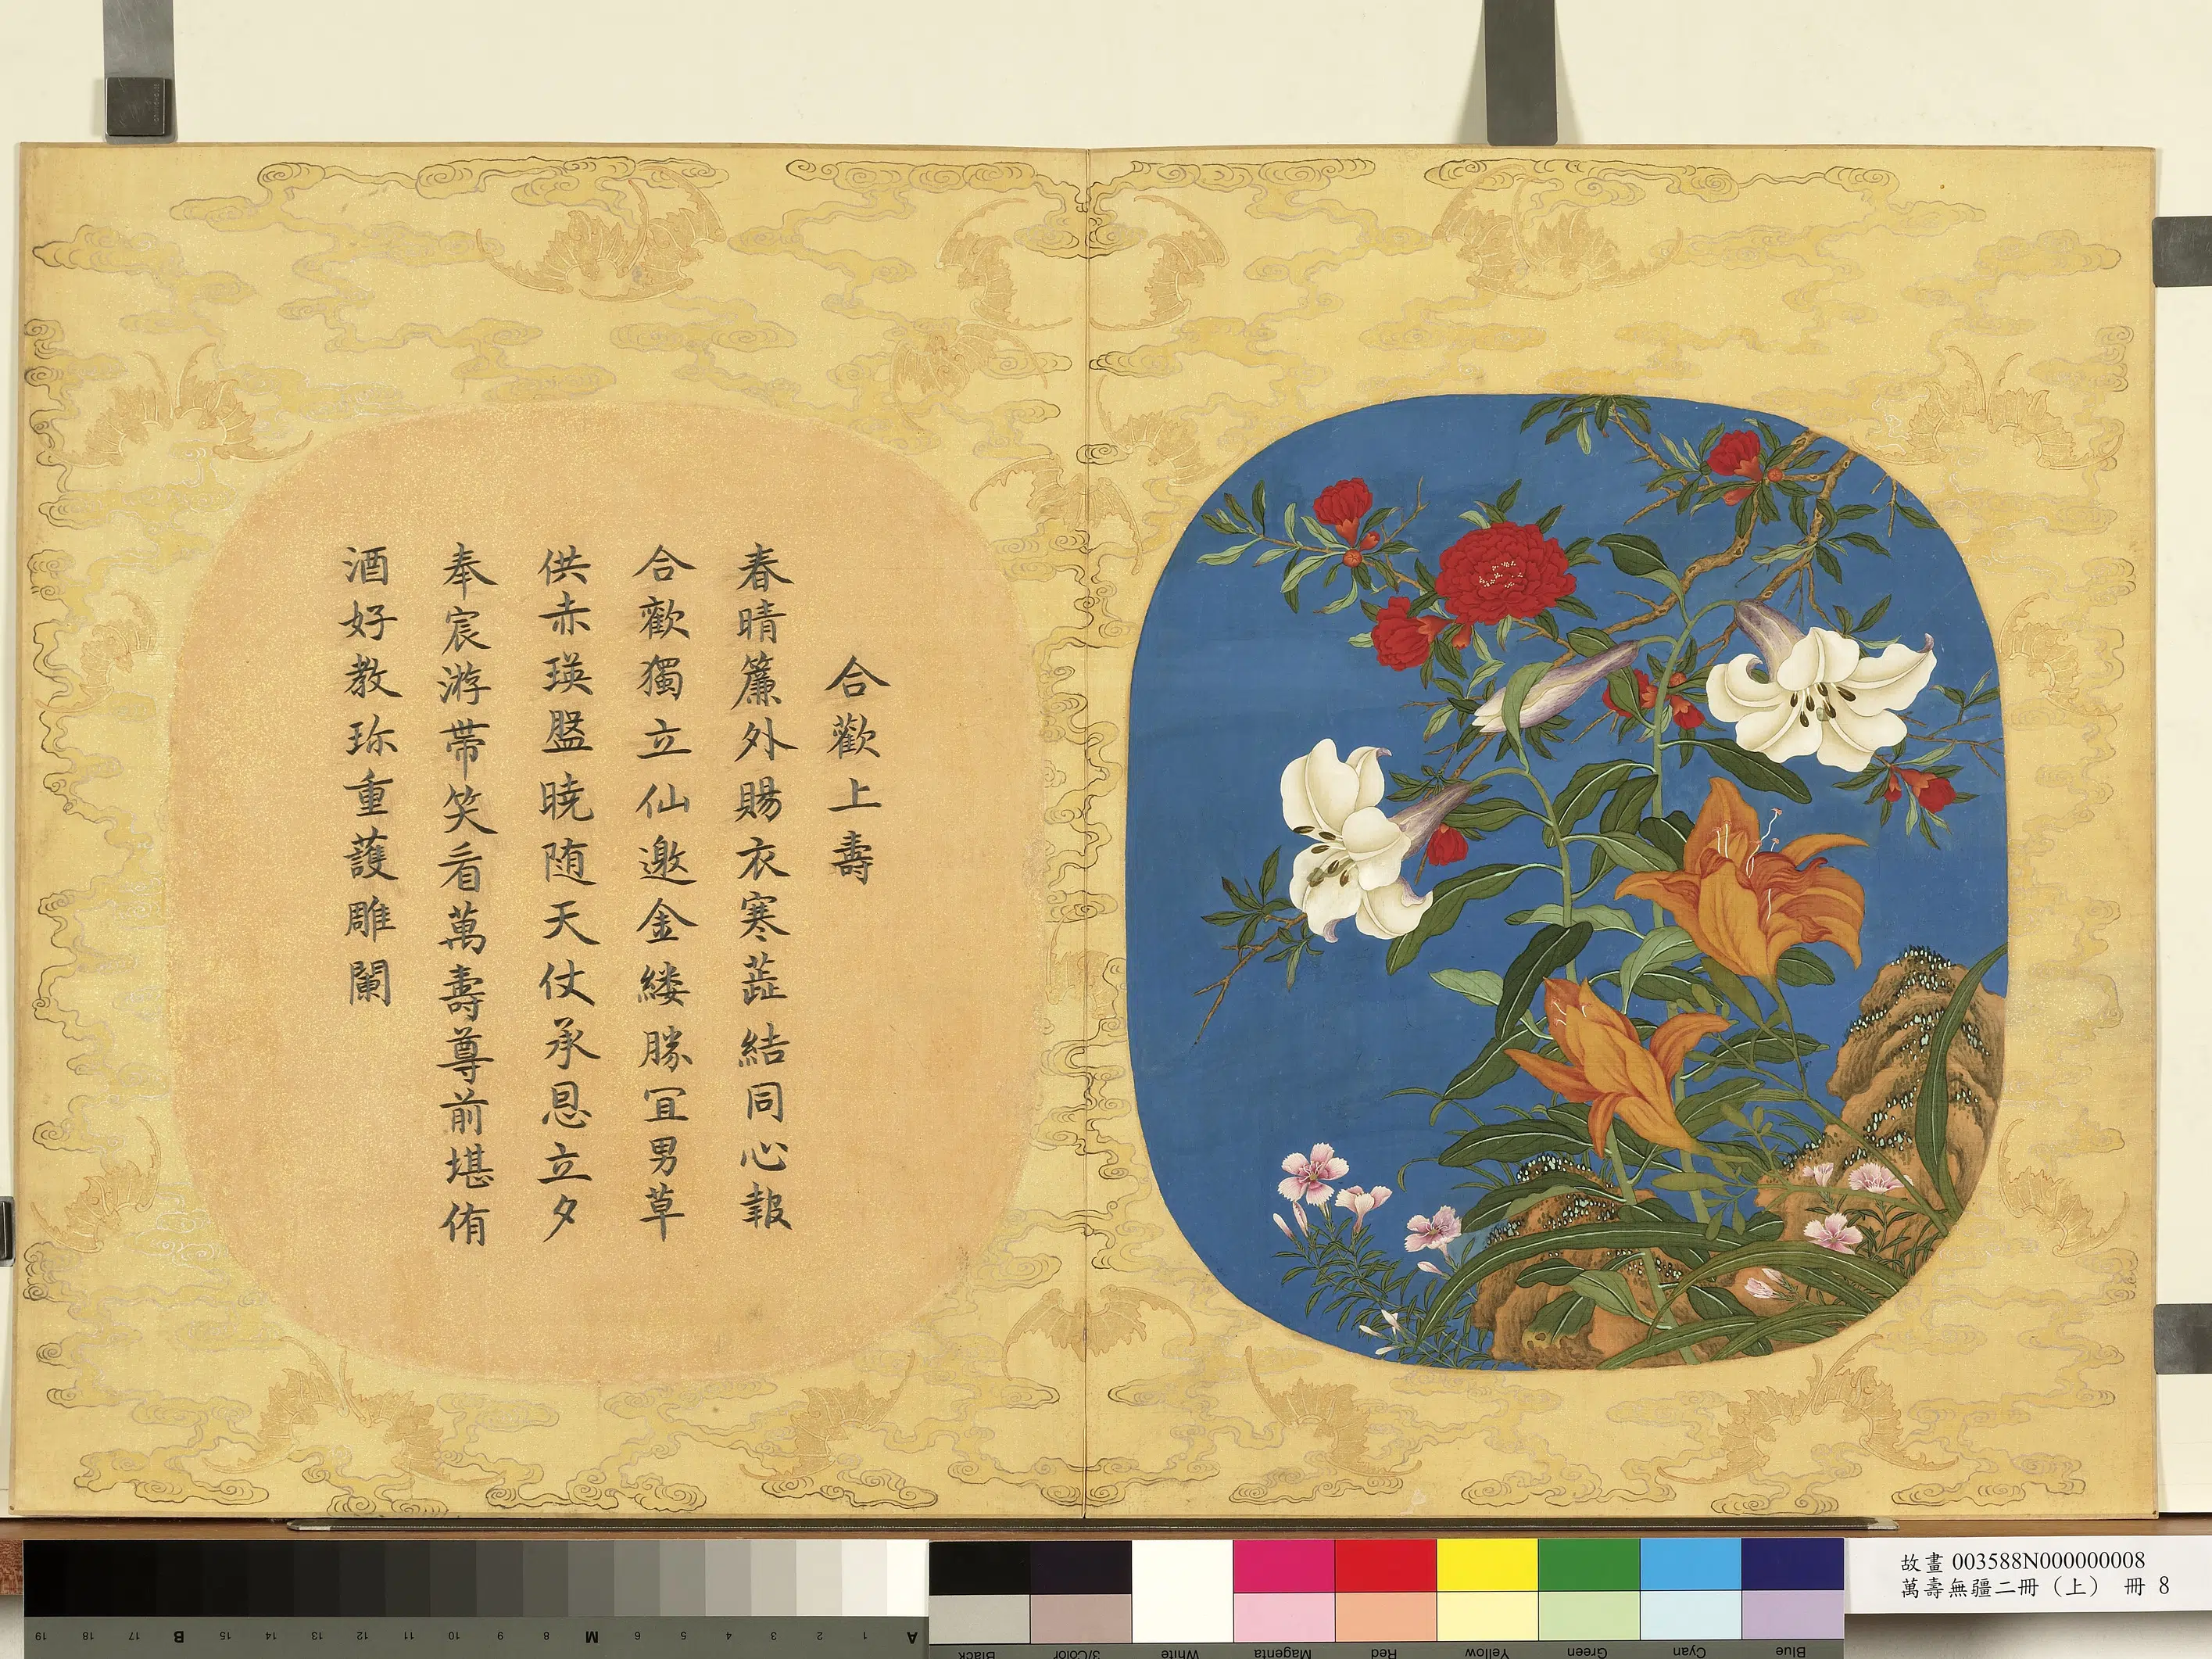 合歡上壽
春晴簾外賜衣寒蕋結同心報
合歡獨立仙邀金縷勝宜男草
供赤瑛盤曉随天仗承恩立夕
奉宸游帶笑看萬壽尊前堪侑
酒好教珎重護雕闌
故畫 003588N000000008
萬壽無疆二冊（上） 冊 8
19 18 17 B 15 14 13 12 11 10 9 8 M 6 5 4 3 2 1 A
Black 3/Color White Magenta Red Yellow Green Cyan Blue